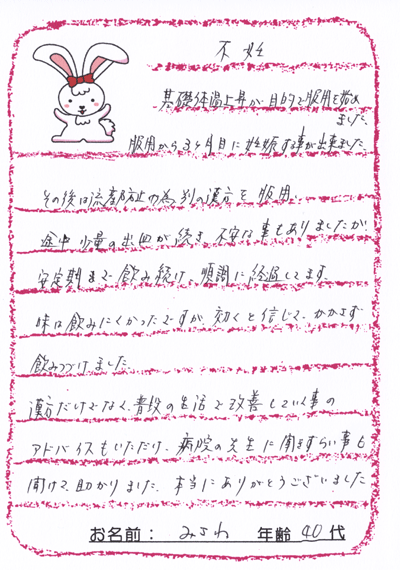 不妊
基礎体温上昇が目的で服用を始め
ました
服用から3ヶ月目に妊娠する事が出来ました
その後は流産防止の為、別の漢方を服用
途中少量の出血が続き、不安な事もありましたが
安定期まで飲み続け、順調に経過してます。
味は飲みにくかったですが、効くと信じて、かかさず
飲みつづけました
漢方だけでなく、普段の生活で改善していく事の
アドバイスもいただけ、病院の先生に聞きずらい事も
聞けて助かりました、本当にありがとうございました
お名前： みさわ 年齢 40 代